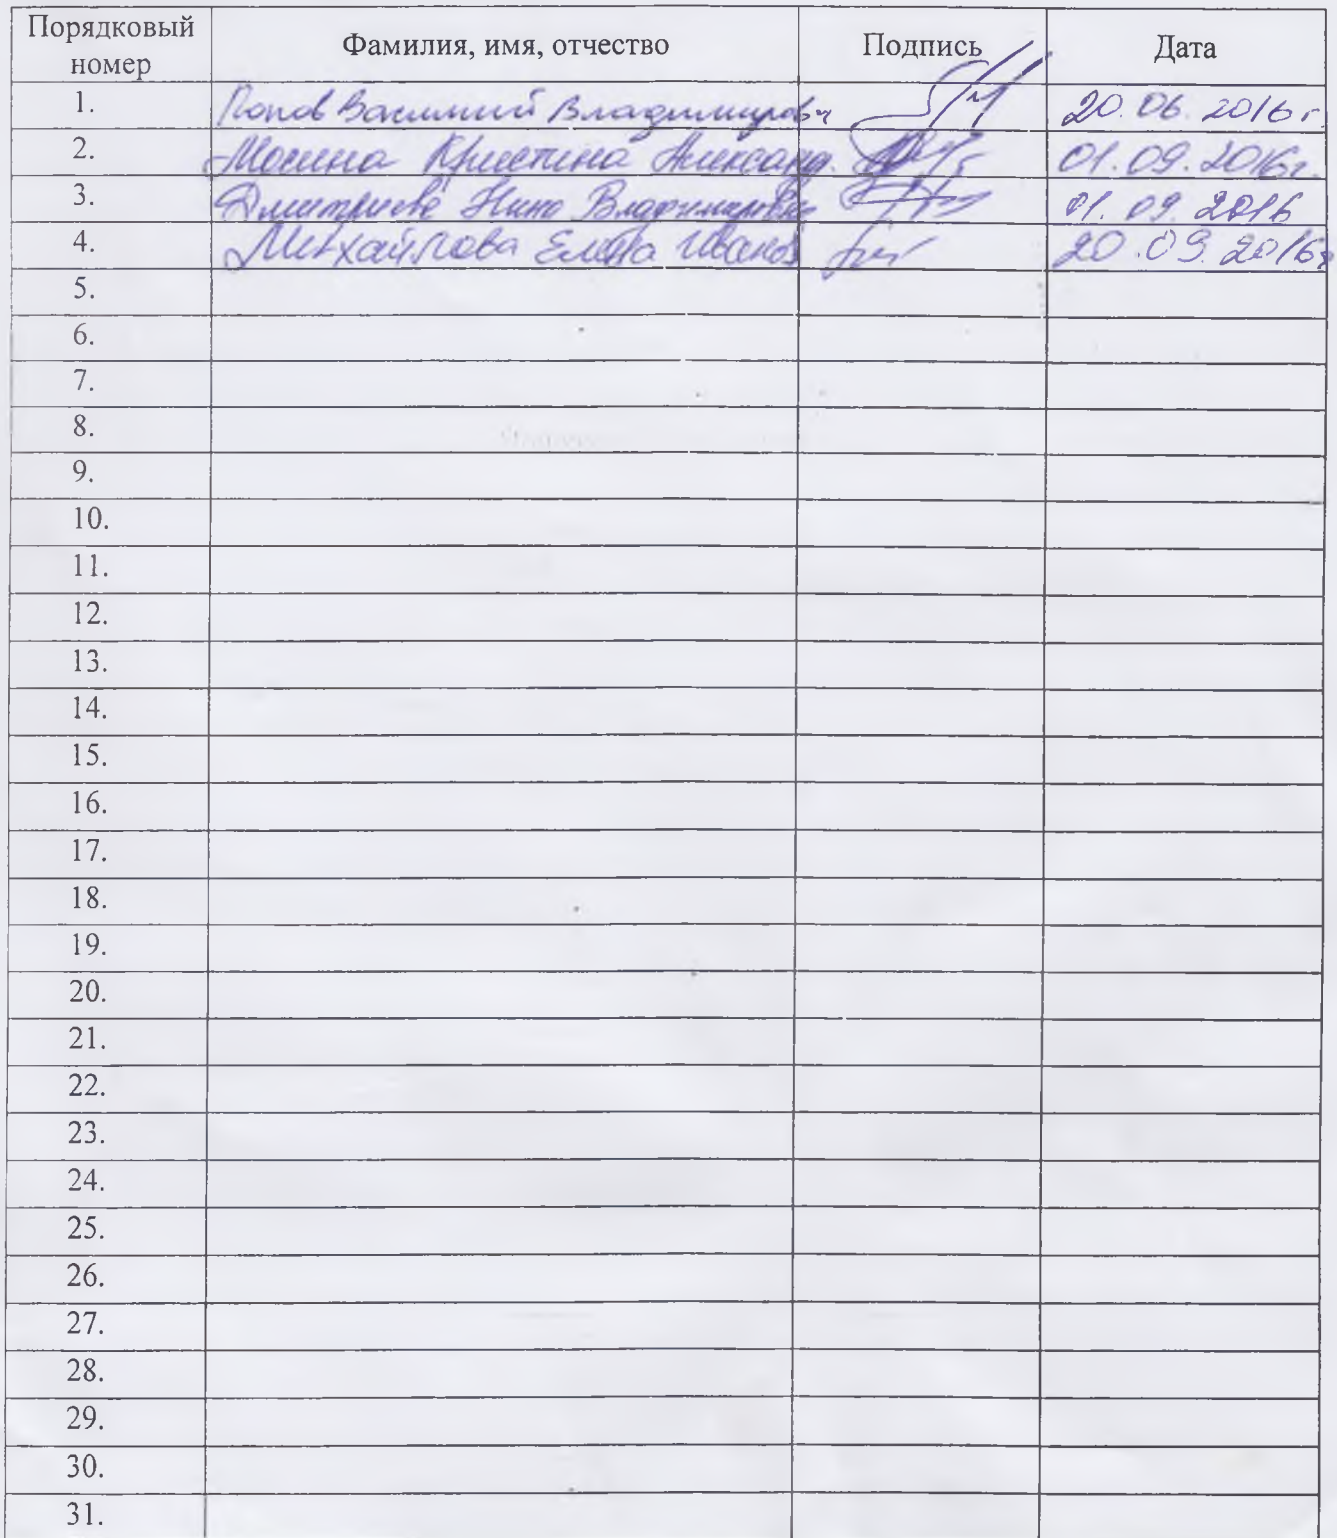 Порядковый номер Фамилия, имя, отчество Подпись Дата
1. Попов Василий Владимирович 20.06.2016 г.
2. Мосина Кристина Александ. 01.09.2016г.
3. Дмитриева Нина Владимировна 01.09.2016
4. Михайлова Елена Иванов 20.09.2016г
5.
6.
7.
8.
9.
10.
11.
12.
13.
14.
15.
16.
17.
18.
19.
20.
21.
22.
23.
24.
25.
26.
27.
28.
29.
30.
31.